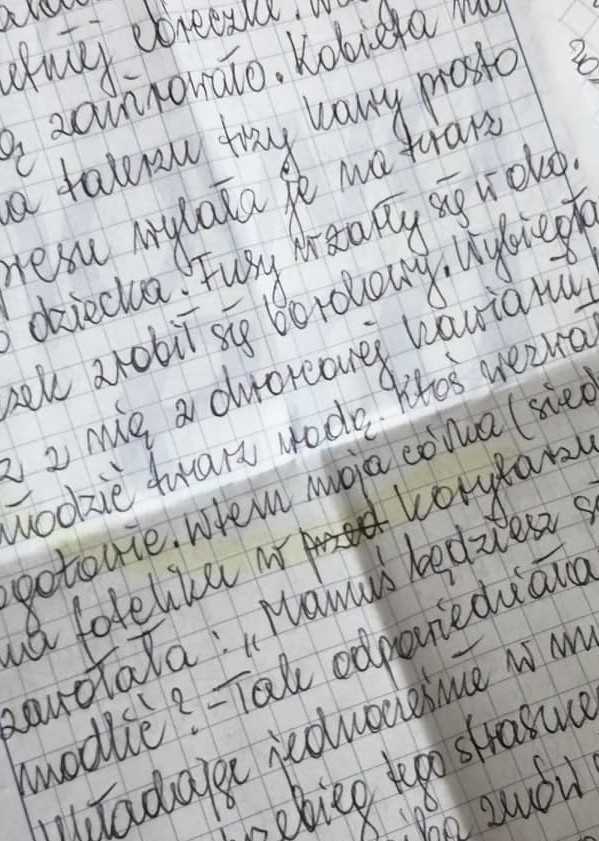 córeczki.
zawirowało. Kobieta na
talerzu trzy kawy prosto
wylała je na twarz
dziecka. Fusy wżarły się w oko.
zrobił się bordowy. Wybiegła
z nią z dworcowej kawiarni,
twarz wodą. Ktoś wezwał
Wtem moja córka (sied
na foteliku w przed korytarzu
zawołała: "Mamuś będziesz s
modlić? - Tak odpowiedziała
wkładając jednocześnie w
tego straszne
znów
30